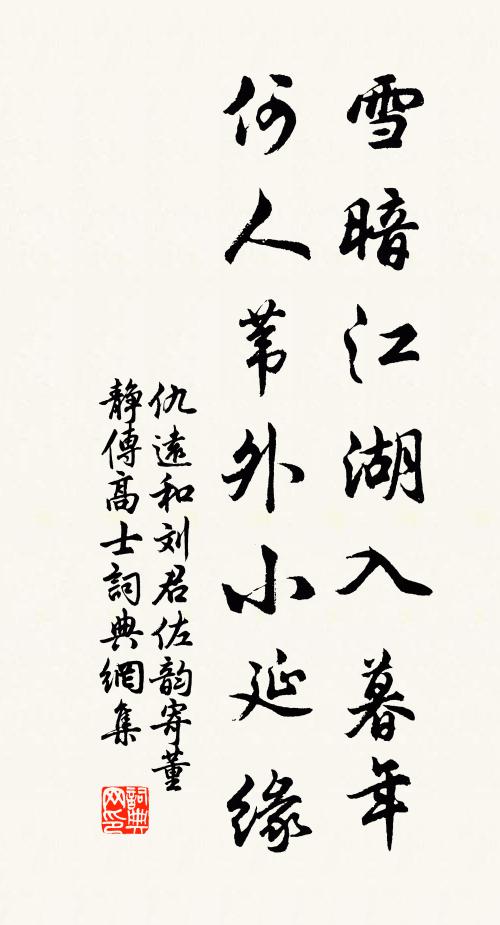 雪暗江湖入暮年
何人苇外小延缘
仇远和刘君佐韵寄董
静傳高士詞典網集
詞典
网印